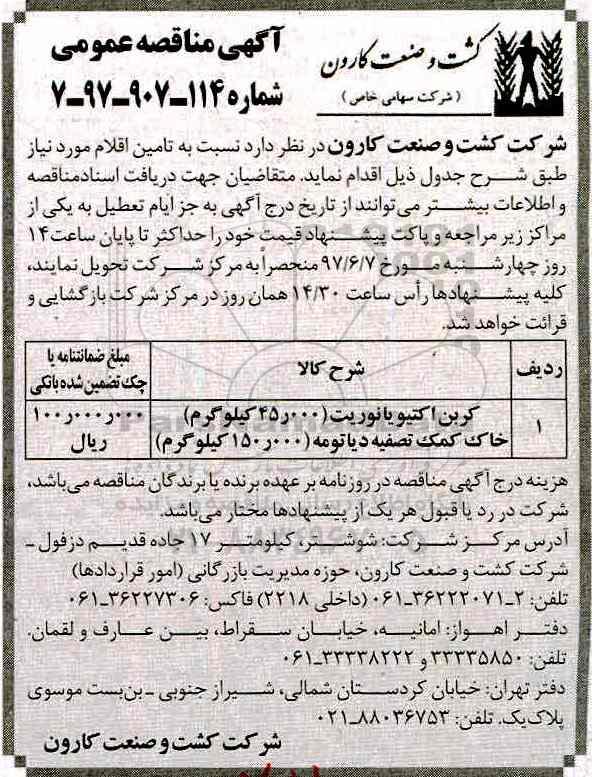 کشت و صنعت کارون
( شرکت سهامی خاص )
آگهی مناقصه عمومی
شماره ۱۱۴ـ۹۰۷ـ۹۷ـ۷
شرکت کشت و صنعت کارون در نظر دارد نسبت به تامین اقلام مورد نیاز
طبق شرح جدول ذیل اقدام نماید. متقاضیان جهت دریافت اسناد مناقصه
و اطلاعات بیشتر می‌توانند از تاریخ درج آگهی به جز ایام تعطیل به یکی از
مراکز زیر مراجعه و پاکت پیشنهاد قیمت خود را حداکثر تا پایان ساعت ۱۴
روز چهارشنبه مورخ ۹۷/۶/۷ منحصراً به مرکز شرکت تحویل نمایند،
کلیه پیشنهادها رأس ساعت ۱۴/۳۰ همان روز در مرکز شرکت بازگشایی و
قرائت خواهد شد.
ردیف شرح کالا مبلغ ضمانتنامه یا
چک تضمین شده بانکی
۱ کربن اکتیو یا نوریت (۴۵ر۰۰۰ کیلوگرم) ۱۰۰ر۰۰۰ر۰۰۰
خاک کمک تصفیه دیاتومه (۱۵۰ر۰۰۰ کیلوگرم) ریال
هزینه درج آگهی مناقصه در روزنامه بر عهده برنده یا برندگان مناقصه می‌باشد،
شرکت در رد یا قبول هر یک از پیشنهادها مختار می‌باشد.
آدرس مرکز شرکت: شوشتر، کیلومتر ۱۷ جاده قدیم دزفول ـ
شرکت کشت و صنعت کارون، حوزه مدیریت بازرگانی (امور قراردادها)
تلفن: ۲ـ۳۶۲۲۲۰۷۱ـ۰۶۱ (داخلی ۲۲۱۸) فاکس: ۳۶۲۲۷۳۰۶ـ۰۶۱
دفتر اهواز: امانیه، خیابان سقراط، بین عارف و لقمان.
تلفن: ۳۳۳۳۵۸۵۰ و ۳۳۳۳۸۲۲۲ـ۰۶۱
دفتر تهران: خیابان کردستان شمالی، شیراز جنوبی ـ بن‌بست موسوی
پلاک یک. تلفن: ۸۸۰۳۶۷۵۳ـ۰۲۱
شرکت کشت و صنعت کارون